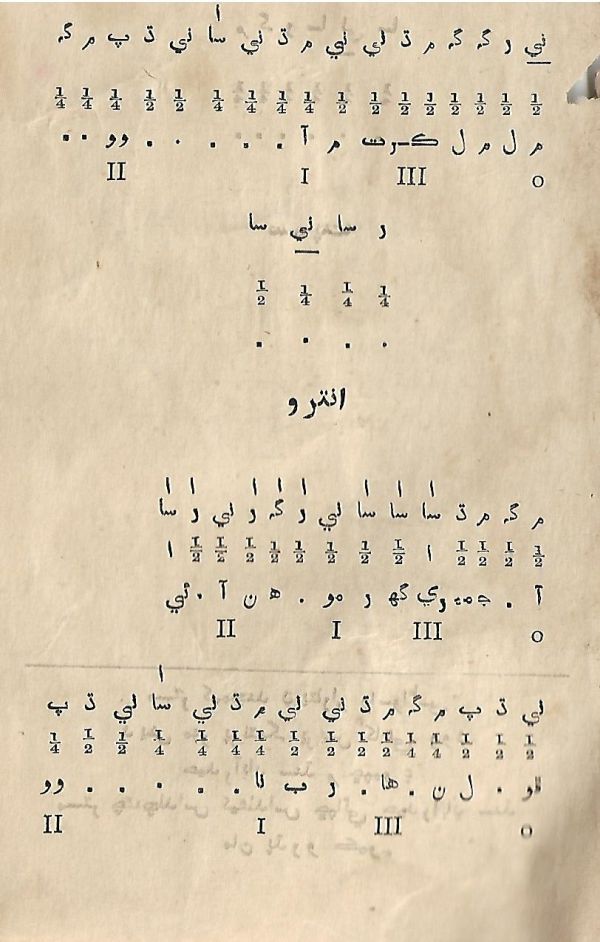 ني ر گہ گہ م ڌ ني ني م ڌ ني سا ني ڌ پ م گہ
1/2 1/2 1/2 1/2 1/2 1/2 1/2 1/2 1/4 1/4 1/4 1/4 1/2 1/2 1/4 1/4 1/4
م ل م ل ڪرت م آ . . . . . وو . .
O III I II
ر سا ني سا
1/4 1/4 1/4 1/2
. . . .
انترو
م گہ م ڌ سا سا سا ني ر گہ ر ني ر سا
1/2 1/2 1/2 1/2 1 1/2 1/2 1/2 1/2 1/2 1/2 1/2 1/2 1
آ . ري گهہ ر مو . هن آ . ئي
O III I II
ني ڌ پ م گہ م ڌ ني ني م ڌ ني سا ني ڌ پ
1/2 1/2 1/2 1/4 1/4 1/2 1/2 1/2 1/2 1/4 1/4 1/4 1/4 1/2 1/2 1/4
. ل ن . ها . ر ب نا . . . . . وو
O III I II